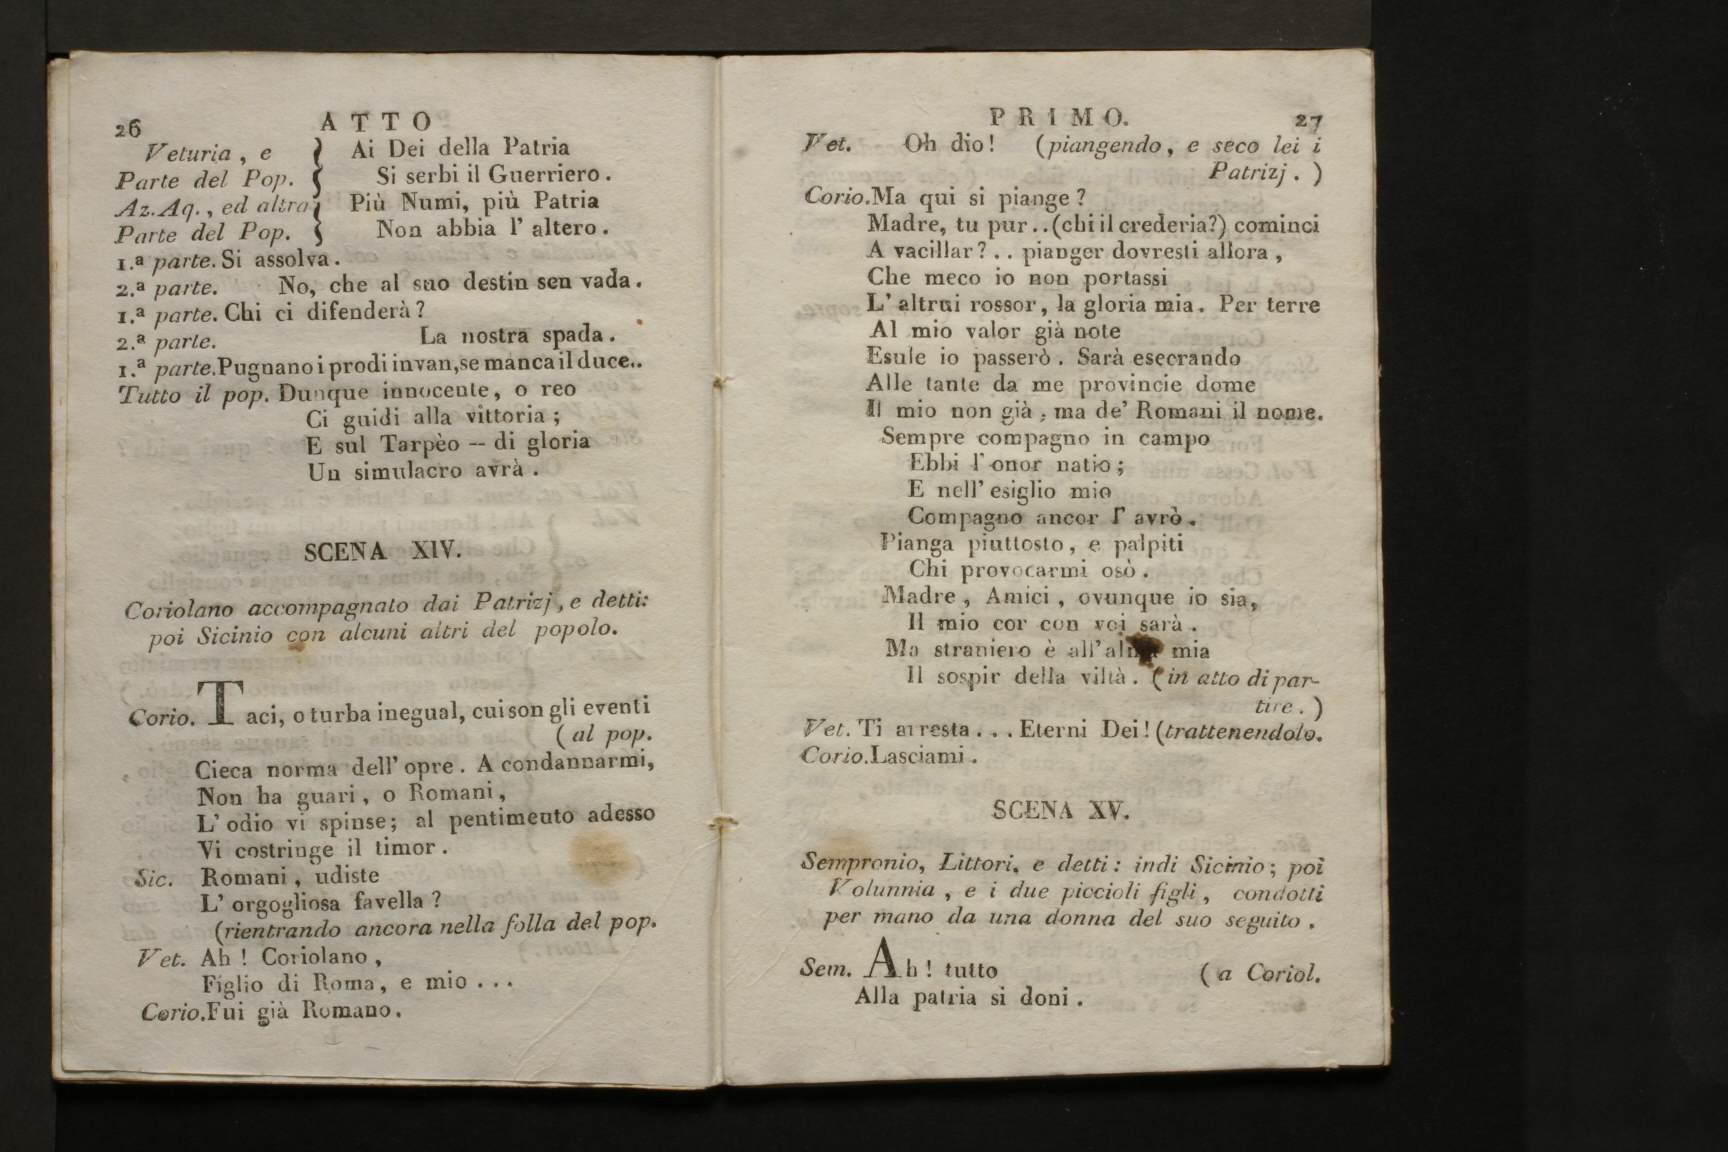 26 ATTO
Veturia, e } Ai Dei della Patria
Parte del Pop. } Si serbi il Guerriero.
Az. Aq., ed altra } Più Numi, più Patria
Parte del Pop. } Non abbia l' altero.
1.ª parte. Si assolva.
2.ª parte. No, che al suo destin sen vada.
1.ª parte. Chi ci difenderà?
2.ª parte. La nostra spada.
1.ª parte. Pugnano i prodi invan, se manca il duce..
Tutto il pop. Dunque innocente, o reo
Ci guidi alla vittoria;
E sul Tarpèo -- di gloria
Un simulacro avrà.
SCENA XIV.
Coriolano accompagnato dai Patrizj, e detti:
poi Sicinio con alcuni altri del popolo.
Corio. Taci, o turba inegual, cui son gli eventi
(al pop.
Cieca norma dell' opre. A condannarmi,
Non ha guari, o Romani,
L' odio vi spinse; al pentimento adesso
Vi costringe il timor.
Sic. Romani, udiste
L' orgogliosa favella?
(rientrando ancora nella folla del pop.
Vet. Ah! Coriolano,
Figlio di Roma, e mio...
Corio. Fui già Romano.
PRIMO. 27
Vet. Oh dio! (piangendo, e seco lei i
Patrizj.)
Corio. Ma qui si piange?
Madre, tu pur..(chi il crederia?) cominci
A vacillar?.. pianger dovresti allora,
Che meco io non portassi
L' altrui rossor, la gloria mia. Per terre
Al mio valor già note
Esule io passerò. Sarà esecrando
Alle tante da me provincie dome
Il mio non già, ma de' Romani il nome.
Sempre compagno in campo
Ebbi l' onor natio;
E nell' esiglio mio
Compagno ancor l' avrò.
Pianga piuttosto, e palpiti
Chi provocarmi osò.
Madre, Amici, ovunque io sia,
Il mio cor con voi sarà.
Ma straniero è all' alma mia
Il sospir della viltà. (in atto di par-
tire.)
Vet. Ti arresta... Eterni Dei! (trattenendolo.
Corio. Lasciami.
SCENA XV.
Sempronio, Littori, e detti: indi Sicinio; poi
Volunnia, e i due piccioli figli, condotti
per mano da una donna del suo seguito.
Sem. Ah! tutto (a Coriol.
Alla patria si doni.